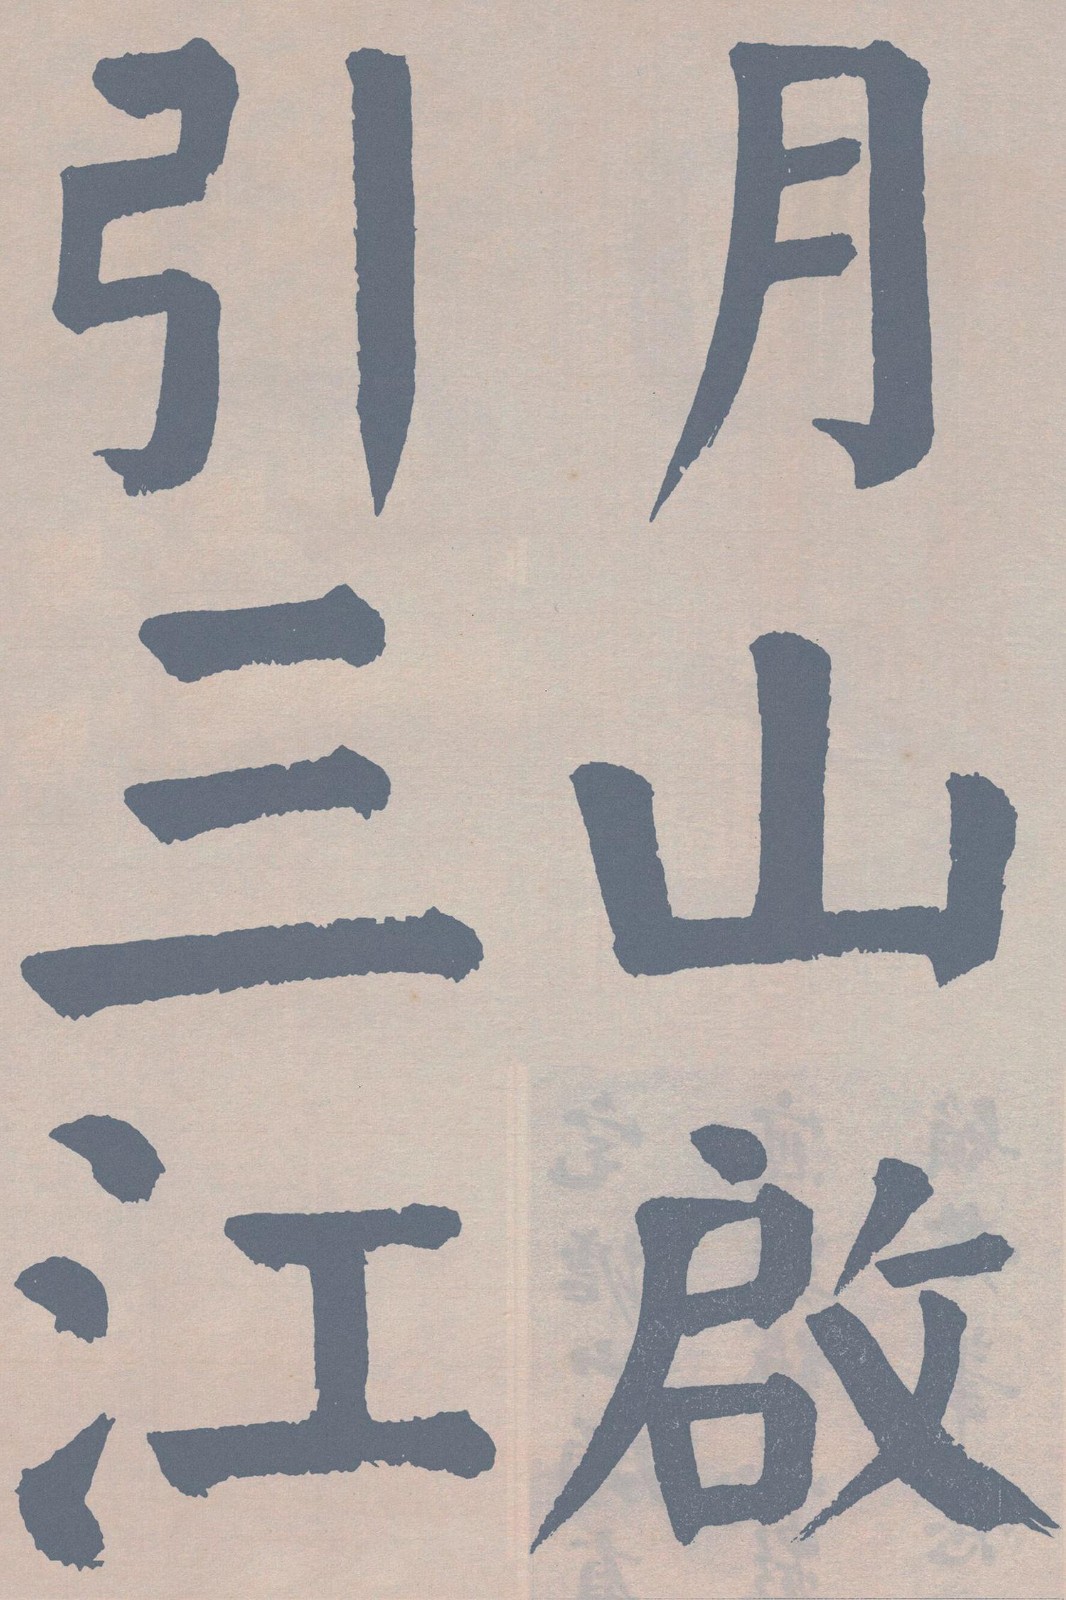 月山啟
引三江